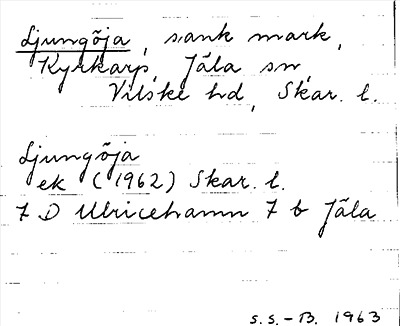 Ljungöja, sank mark,
Kyrkarp, Jäla sn,
Vilske hd, Skar. l.
Ljungöja
ek (1962) Skar. l.
7 D Ulricehamn 7 b Jäla
S.S.-B. 1963